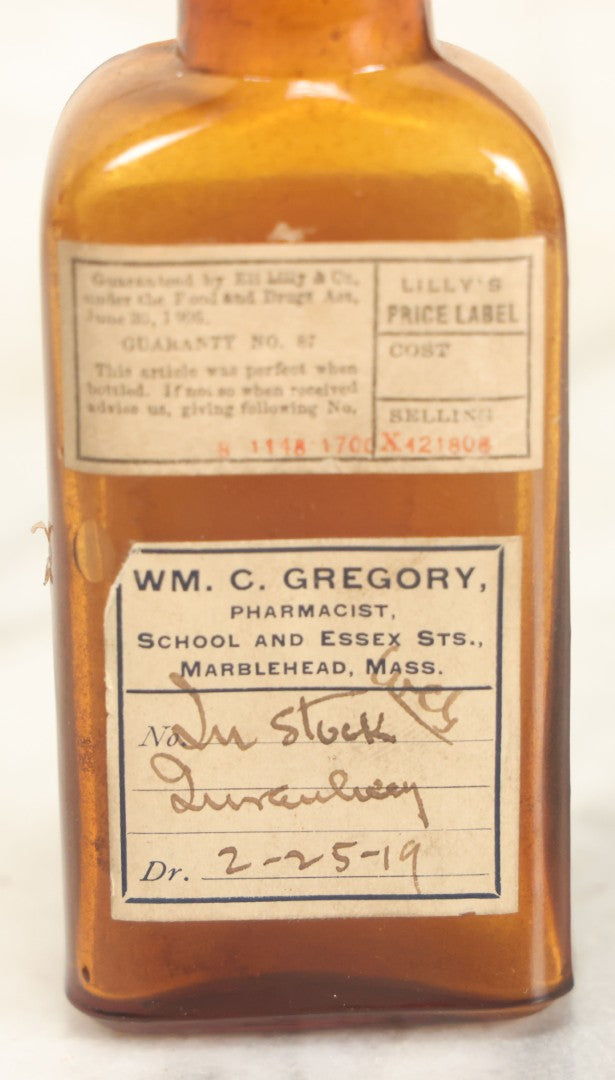 Guaranteed by Eli Lilly & Co.,
under the Food and Drugs Act,
June 30, 1906.
GUARANTY NO. 87
This article was perfect when
bottled. If not so when received
advise us, giving following No.
LILLY'S
PRICE LABEL
COST
SELLING
1148 1700 X421808
WM. C. GREGORY,
PHARMACIST,
SCHOOL AND ESSEX STS.,
MARBLEHEAD, MASS.
No. In Stock
Dr. 2-25-19